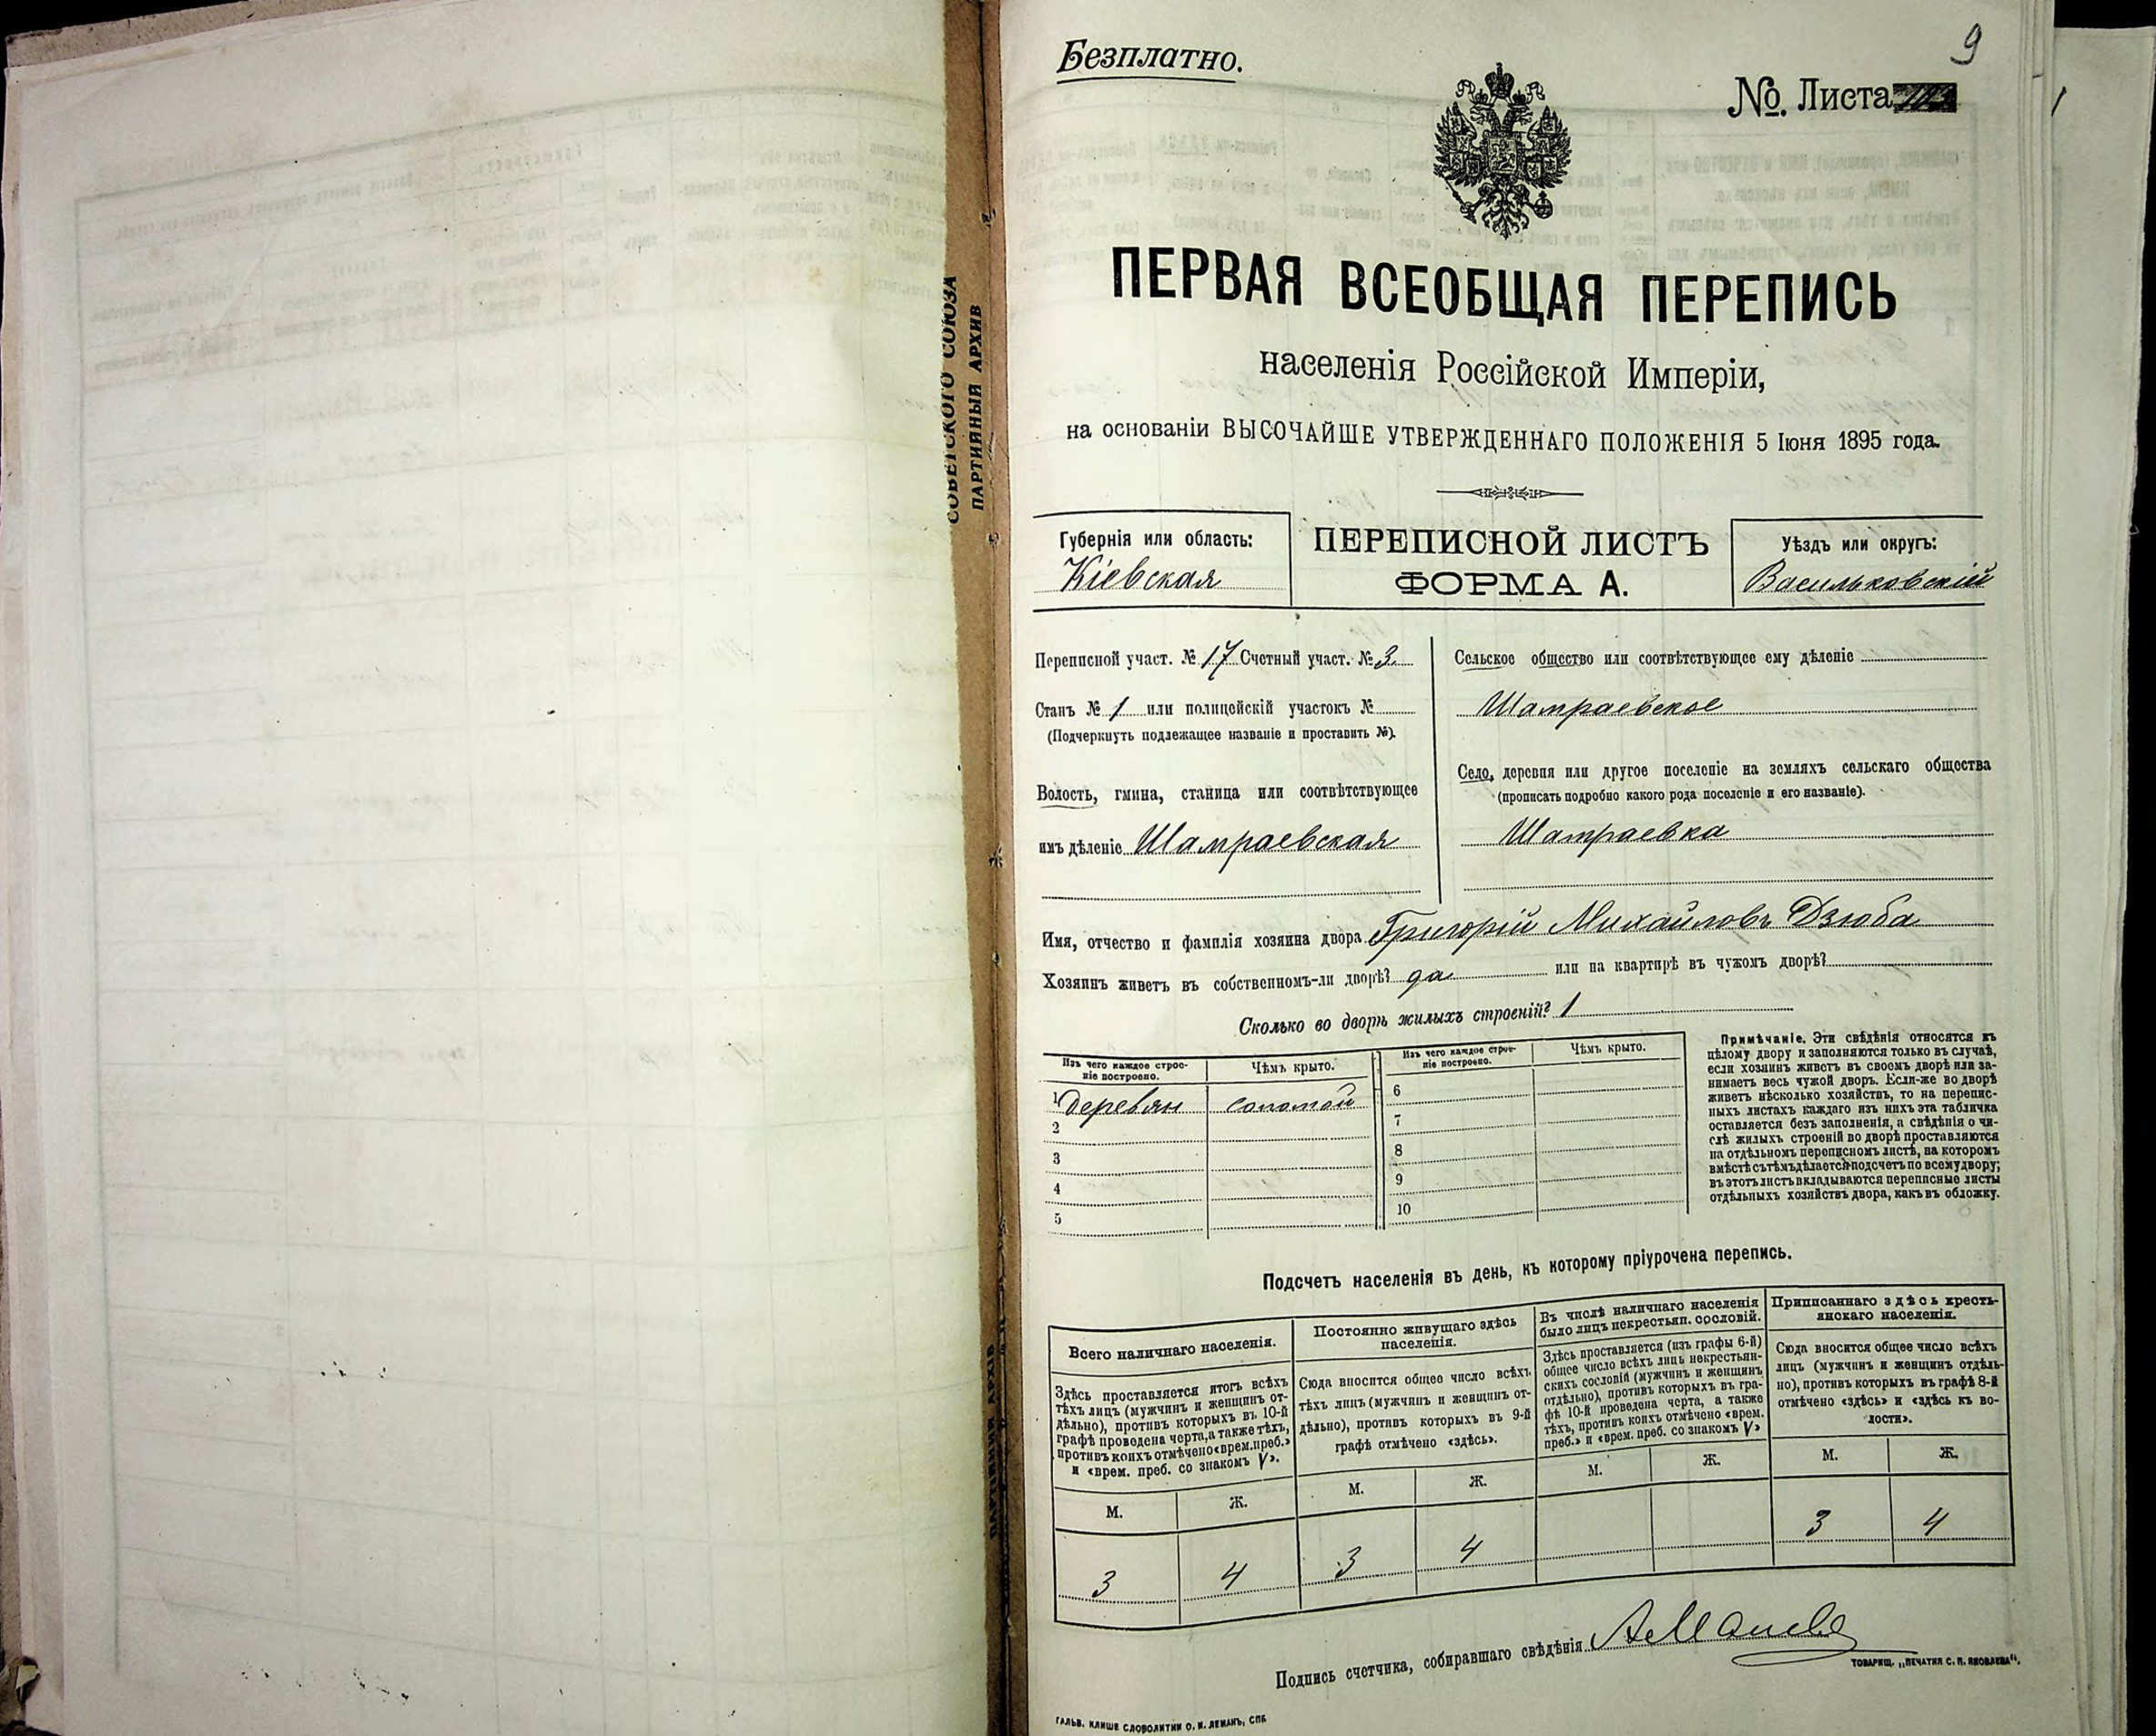 СОВЕТСКОГО СОЮЗА
ПАРТИЙНЫЙ АРХИВ
Безплатно.
9
№ Листа
ПЕРВАЯ ВСЕОБЩАЯ ПЕРЕПИСЬ
населенія Россійской Имперіи,
на основаніи ВЫСОЧАЙШЕ УТВЕРЖДЕННАГО ПОЛОЖЕНІЯ 5 Іюня 1895 года.
Губернія или область:
Кіевская
ПЕРЕПИСНОЙ ЛИСТЪ
ФОРМА А.
Уѣздъ или округъ:
Васильковскій
Переписной участ. № 17 Счетный участ. № 3.
Станъ № 1 или полицейскій участокъ №
(Подчеркнуть подлежащее названіе и проставить №).
Волость, гмина, станица или соотвѣтствующее
имъ дѣленіе Шамраевская
Сельское общество или соотвѣтствующее ему дѣленіе
Шамраевское
Село, деревня или другое поселеніе на земляхъ сельскаго общества
(прописать подробно какого рода поселеніе и его названіе).
Шамраевка
Имя, отчество и фамилія хозяина двора Григорій Михайловъ Дзюба
Хозяинъ живетъ въ собственномъ-ли дворѣ? да или на квартирѣ въ чужомъ дворѣ?
Сколько во дворѣ жилыхъ строеній? 1
Изъ чего каждое строе-
ніе построено.
Чѣмъ крыто.
Изъ чего каждое строе-
ніе построено.
Чѣмъ крыто.
1 деревян соломой
2
3
4
5
6
7
8
9
10
Примѣчаніе. Эти свѣдѣнія относятся къ
цѣлому двору и заполняются только въ случаѣ,
если хозяинъ живетъ въ своемъ дворѣ или за-
нимаетъ весь чужой дворъ. Если-же во дворѣ
живетъ нѣсколько хозяйствъ, то на перепис-
ныхъ листахъ каждаго изъ нихъ эта табличка
оставляется безъ заполненія, а свѣдѣнія о чи-
слѣ жилыхъ строеній во дворѣ проставляются
на отдѣльномъ переписномъ листѣ, на которомъ
вмѣстѣ съ тѣмъ дѣлается подсчетъ по всему двору;
въ этотъ листъ вкладываются переписные листы
отдѣльныхъ хозяйствъ двора, какъ въ обложку.
Подсчетъ населенія въ день, къ которому пріурочена перепись.
Всего наличнаго населенія.
Здѣсь проставляется итогъ всѣхъ
тѣхъ лицъ (мужчинъ и женщинъ от-
дѣльно), противъ которыхъ въ 10-й
графѣ проведена черта, а также тѣхъ,
противъ коихъ отмѣчено «врем. преб.»
и «врем. преб. со знакомъ V».
М.
Ж.
3
4
Постоянно живущаго здѣсь
населенія.
Сюда вносится общее число всѣхъ
тѣхъ лицъ (мужчинъ и женщинъ от-
дѣльно), противъ которыхъ въ 9-й
графѣ отмѣчено «здѣсь».
М.
Ж.
3
4
Въ числѣ наличнаго населенія
было лицъ некрестьян. сословій.
Здѣсь проставляется (изъ графы 6-й)
общее число всѣхъ лицъ некрестьян-
скихъ сословій (мужчинъ и женщинъ
отдѣльно), противъ которыхъ въ гра-
фѣ 10-й проведена черта, а также
тѣхъ, противъ коихъ отмѣчено «врем.
преб.» и «врем. преб. со знакомъ V»
М.
Ж.
Приписаннаго здѣсь кресть-
янскаго населенія.
Сюда вносится общее число всѣхъ
лицъ (мужчинъ и женщинъ отдѣль-
но), противъ которыхъ въ графѣ 8-й
отмѣчено «здѣсь» и «здѣсь къ во-
лости».
М.
Ж.
3
4
Подпись счетчика, собиравшаго свѣдѣнія
ТОВАРИЩ. „ПЕЧАТНЯ С. П. ЯКОВЛЕВА".
ГАЛЬВ. КЛИШЕ СЛОВОЛИТНИ О. И. ЛЕМАНЪ, СПБ